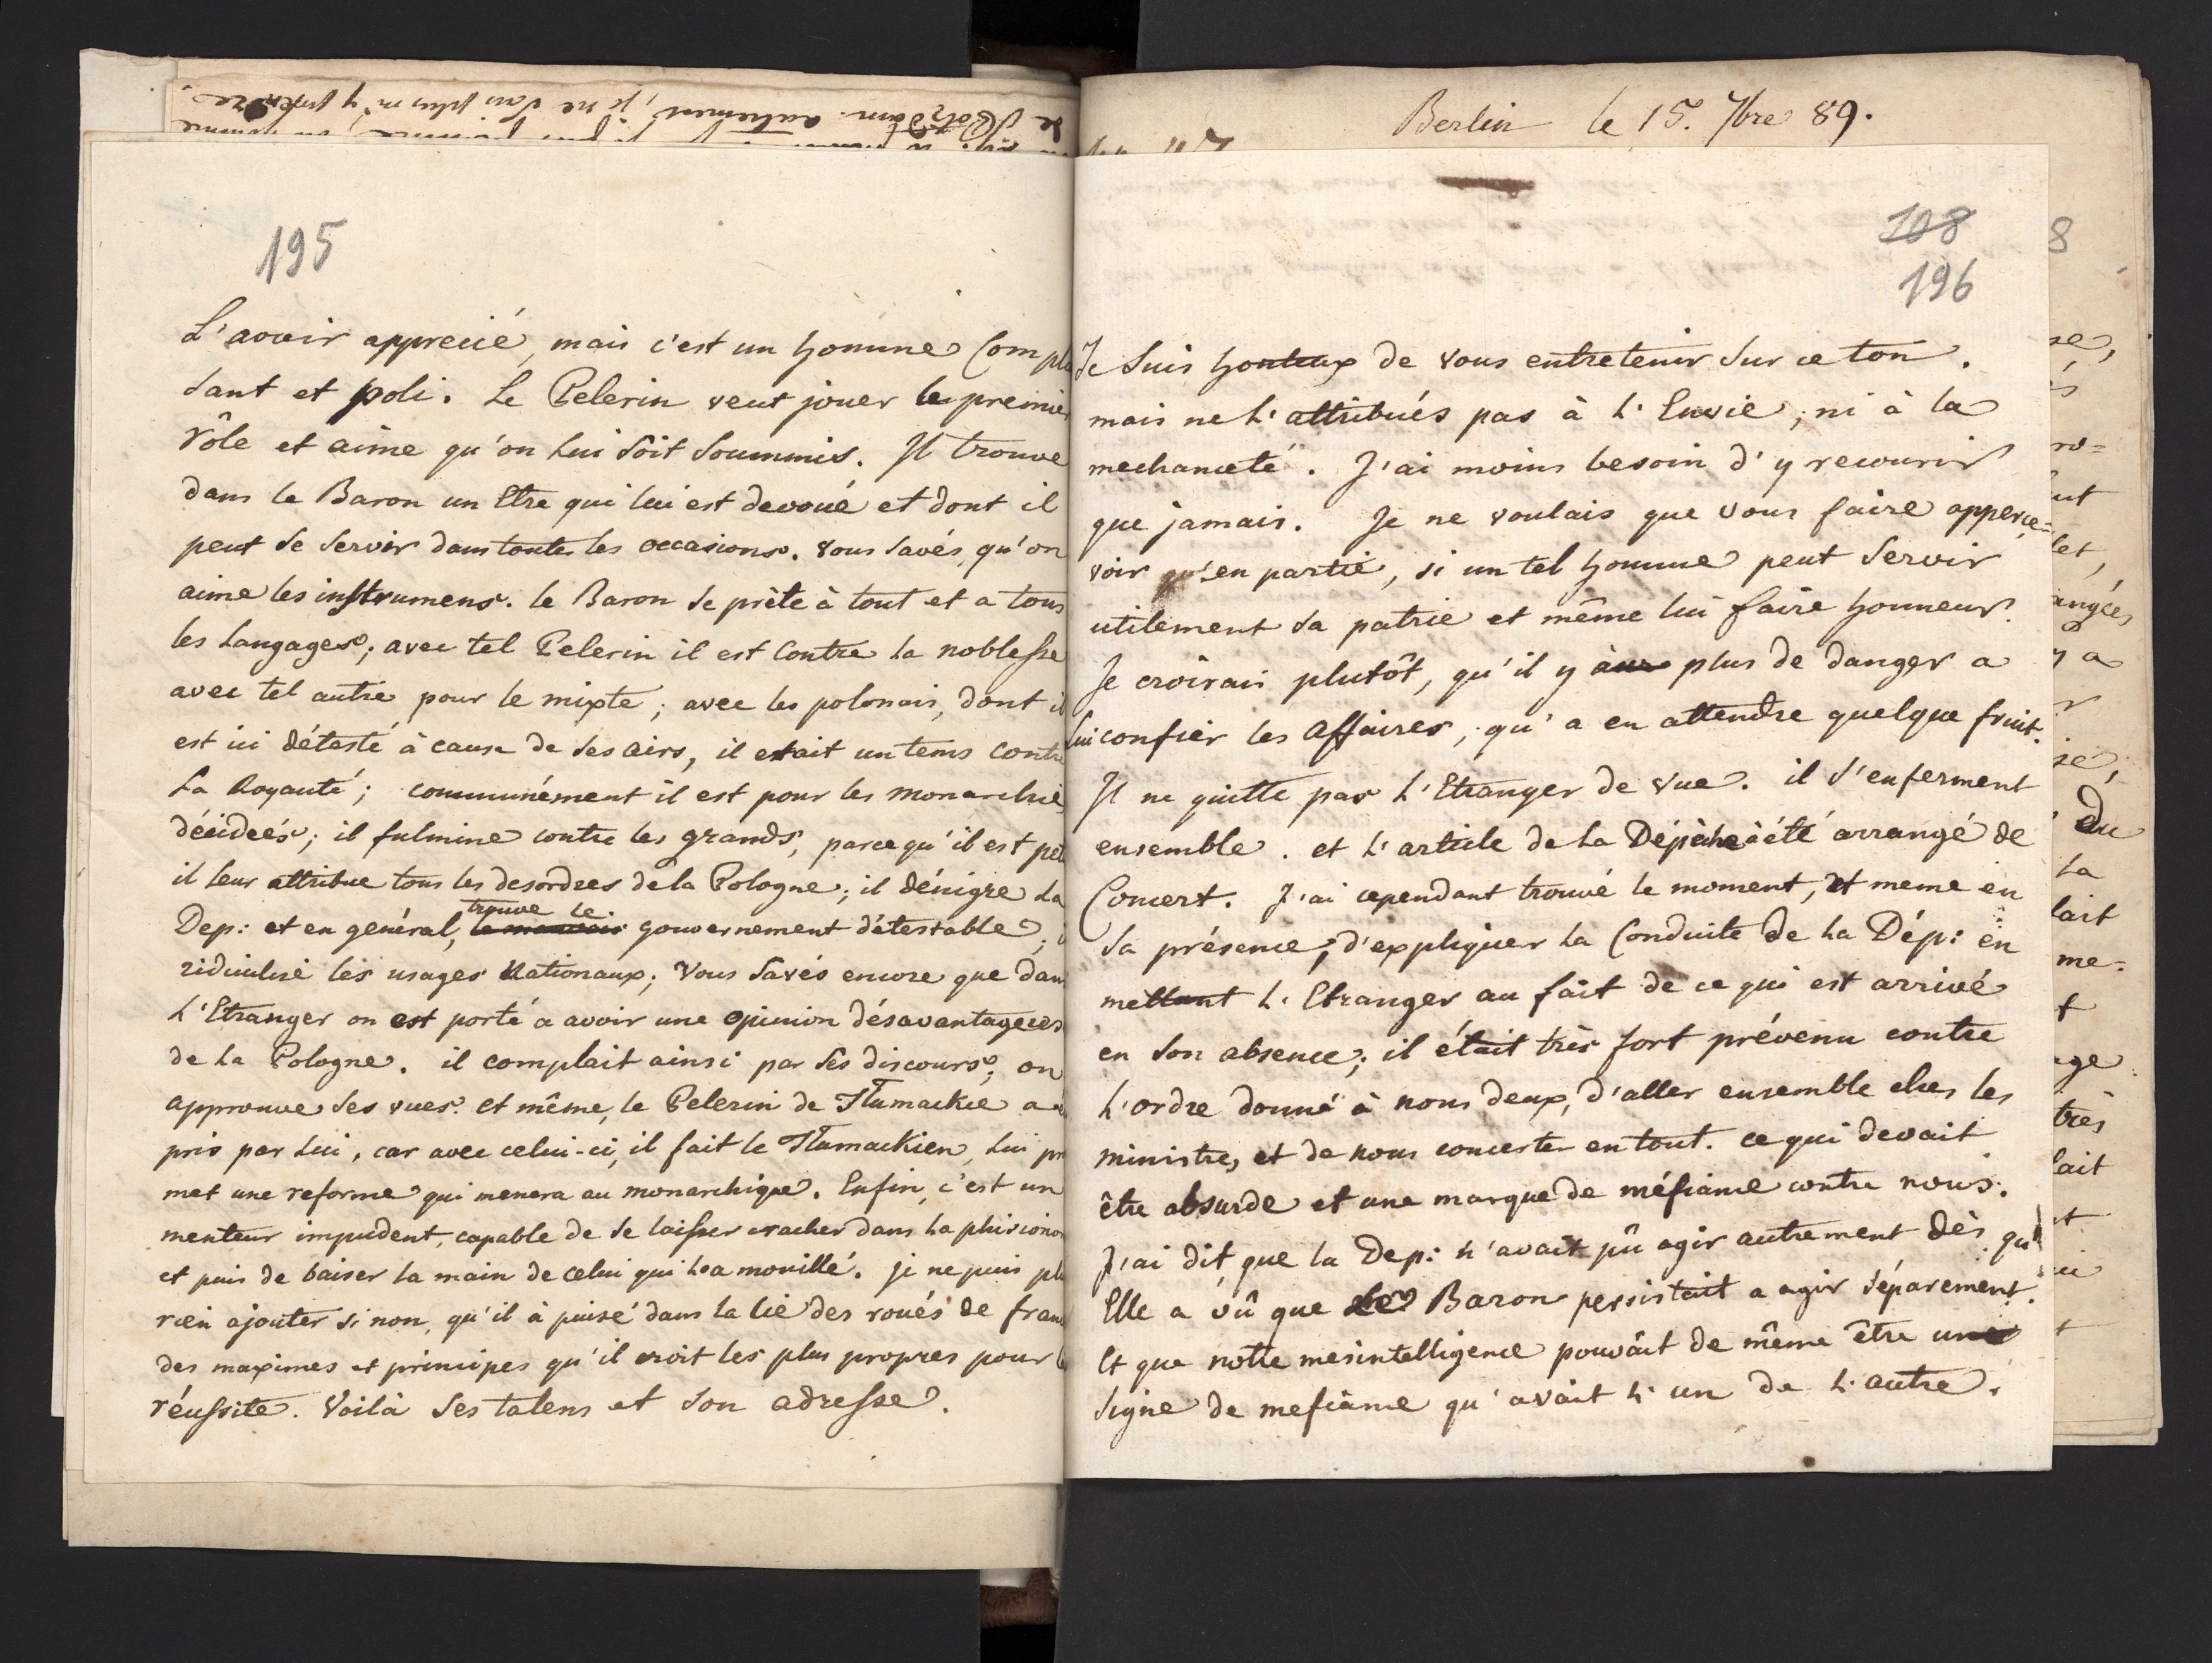 195
L'avoir apprecié, mais c'est un homme Compl
sant et poli. Le Pelerin veut jouer le premier
rôle et aime qu'on lui soit soummis. Il trouve
dans le Baron un Etre qui lui est devoué et dont il
peut se servir dans toutes les occasions. Vous savés, qu'on
aime les instrumens. le Baron se prête à tout et a tous
les langages; avec tel Pelerin il est Contre la noblesse
avec tel autre pour le mixte; avec les polonais, dont il
est ici détesté à cause de ses airs, il etait un tems contre
La Royauté; communément il est pour les monarchies
décidées; il fulmine contre les grands, parce qu'il est pet
il leur attribue tous les desordres de la Pologne; il dénigre La
Dep: et en genéral, trouve le gouvernement détestable; i
ridiculise les usages Nationaux; Vous savés encore que dans
l'Etranger on est porté a avoir une opinion désavantageus
de la Pologne. il complait ainsi par ses discours; on
approuve ses vues. et même, le Pelerin de Tlumackie a
pris par lui, car avec celui-ci, il fait le Tlumackien, lui pr
met une reforme qui menera au monarchique. Enfin, c'est un
menteur impudent, capable de se laisser cracher dans la phisiono
et puis de baiser la main de celui qui l'a mouillé. je ne puis pl
rien ajouter si non, qu'il à puisé dans la lie des roués de fran
des maximes et principes qu'il croit les plus propres pour l
réussite. Voilà ses talens et son adresse.
Berlin le 15. 7bre 89.
108
196
Je suis honteux de vous entretenir sur ce ton.
mais ne l'attribués pas à l'Envie, ni à la
mechanceté. J'ai moins besoin d'y recourir
que jamais. Je ne voulais que vous faire apperce=
voir qu'en partie, si un tel homme peut servir
utilement sa patrie et même lui faire honneur.
Je croirais plutôt, qu'il y a plus de danger a
lui confier les affaires, qu'a en attendre quelque fruit.
Il ne quitte pas l'Etranger de vue. il s'enferment
ensemble. et l'article de la Dépêche à été arrangé de
Concert. J'ai cependant trouvé le moment, et meme en
sa présence, d'expliquer la Conduite de la Dép: en
mettant l'Etranger au fait de ce qui est arrivé
en son absence; il était très fort prévenu contre
l'ordre donné à nous deux, d'aller ensemble ches les
ministres, et de nous concerter en tout. ce qui devait
être absurde et une marque de méfiance contre nous.
J'ai dit que la Dep: n'avait pû agir autrement dès qu'
Elle a vû que le Baron persistait a agir séparement.
Et que notte mesintelligence pouvait de même être un
signe de mefiance qu'avait l'un de l'autre.